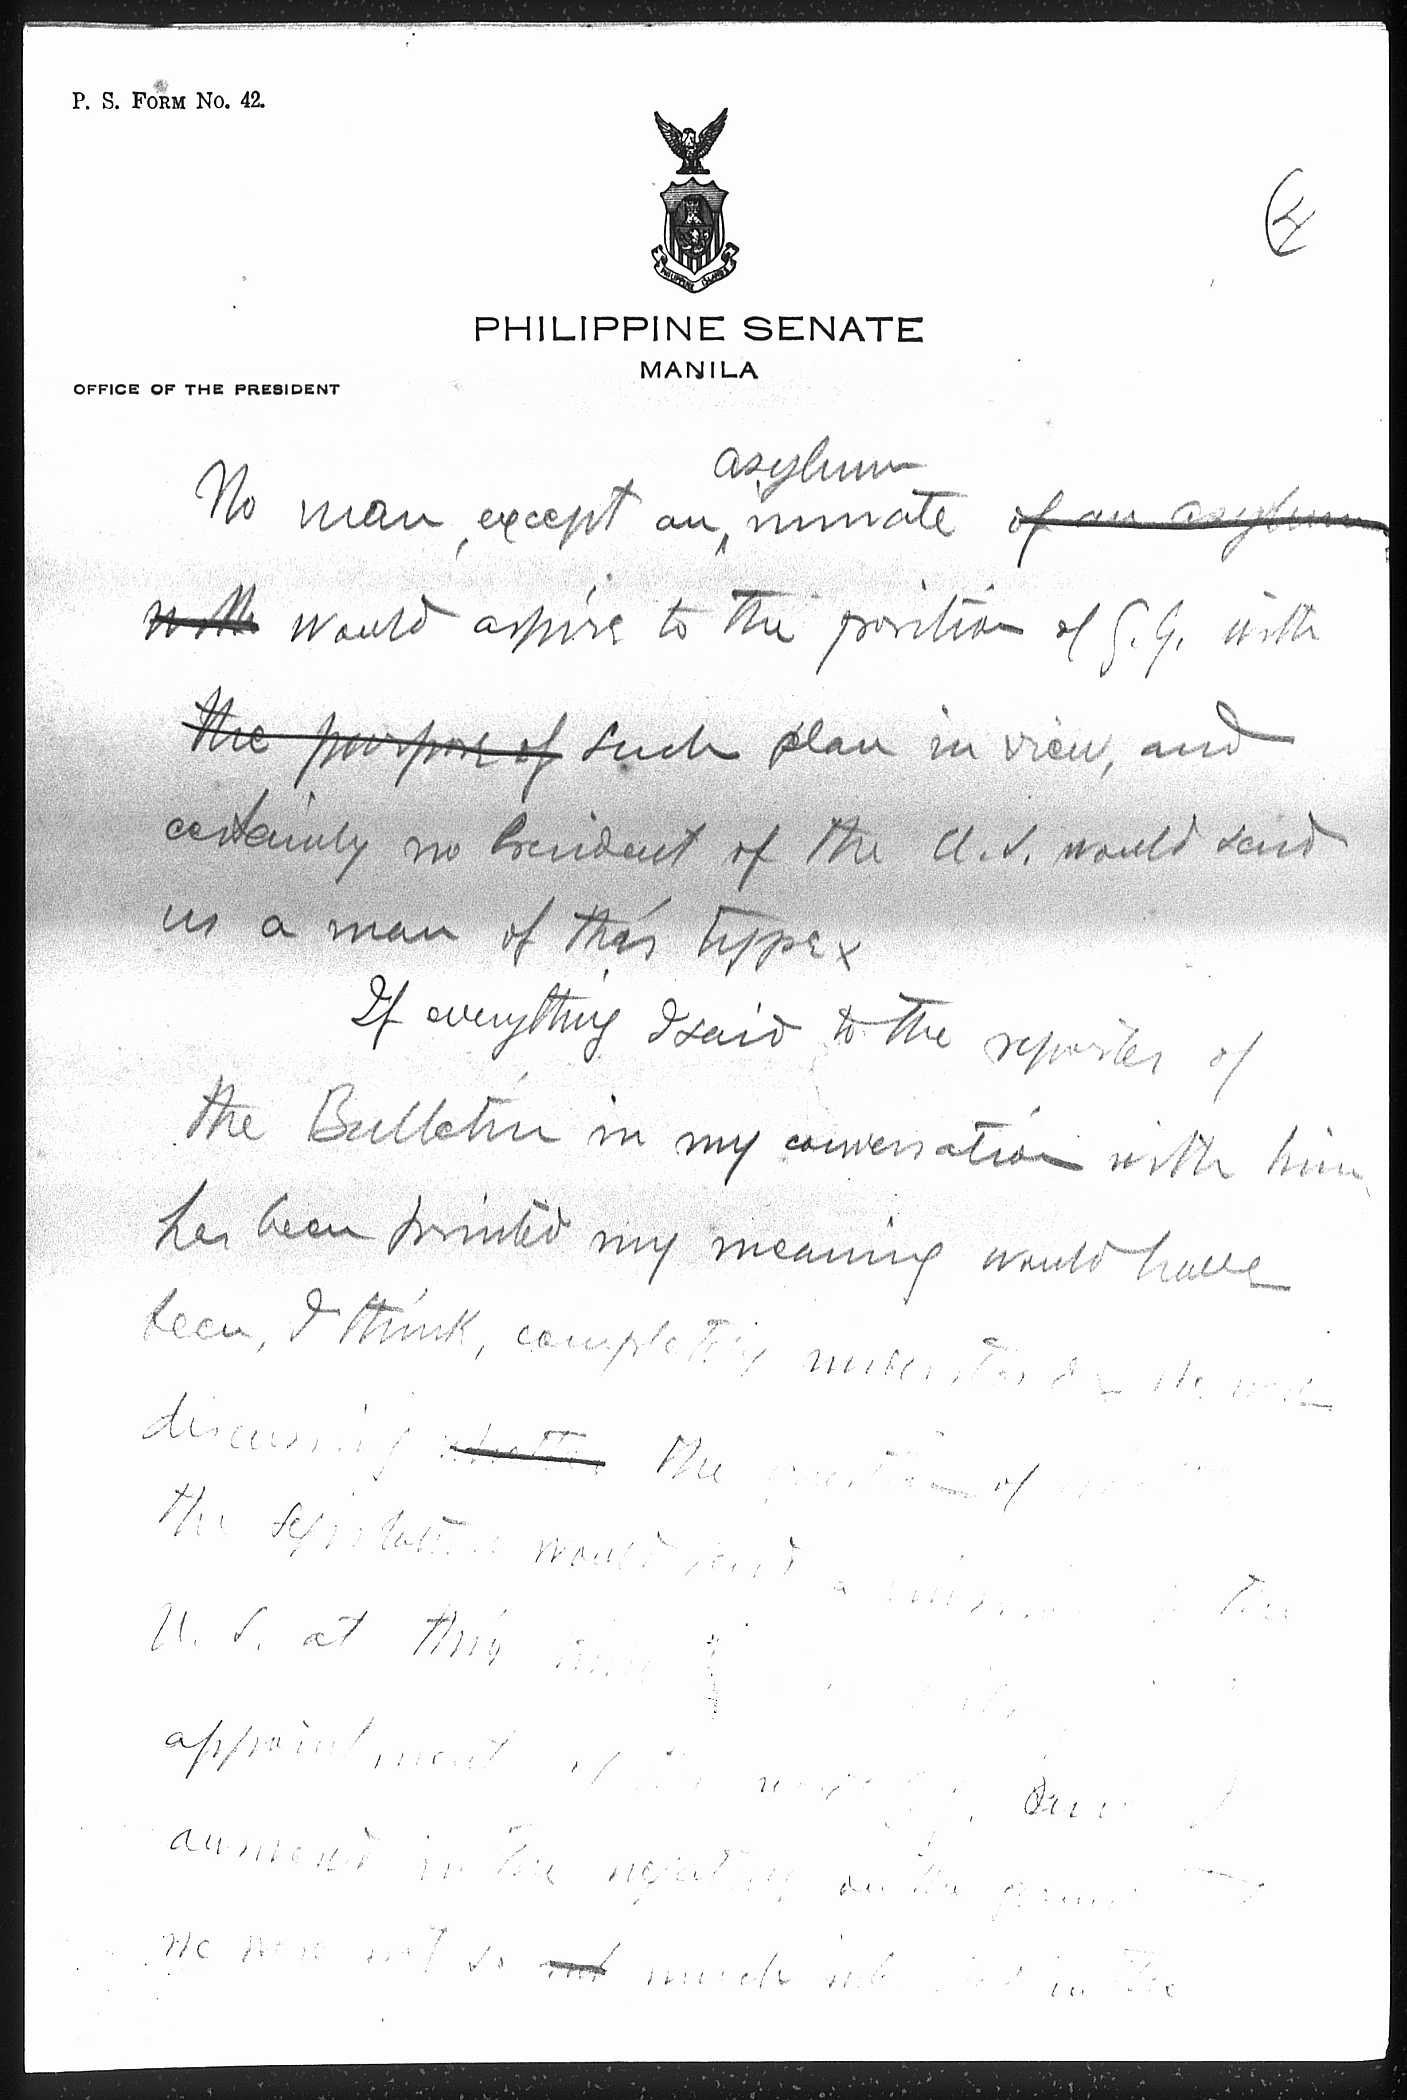 P. S. FORM NO. 42.
4
PHILIPPINE ISLANDS
PHILIPPINE SENATE
MANILA
OFFICE OF THE PRESIDENT
asylum
No man, except an ^ inmate of an asylum
with would aspire to the position of G.G. with
the purpose of such plan in view, and
certainly no President of the U.S. would send
us a man of this type x
If everything I said to the reporter of
the Bulletin in my conversation with him
has been printed my meaning would have
been, I think, completely understood x We were
discussing whether the question of
the legislature would send a mission to the
U. S. at this time
appointment of the new G.G. and I
answered in the negative on the ground
we were not so much interested in the